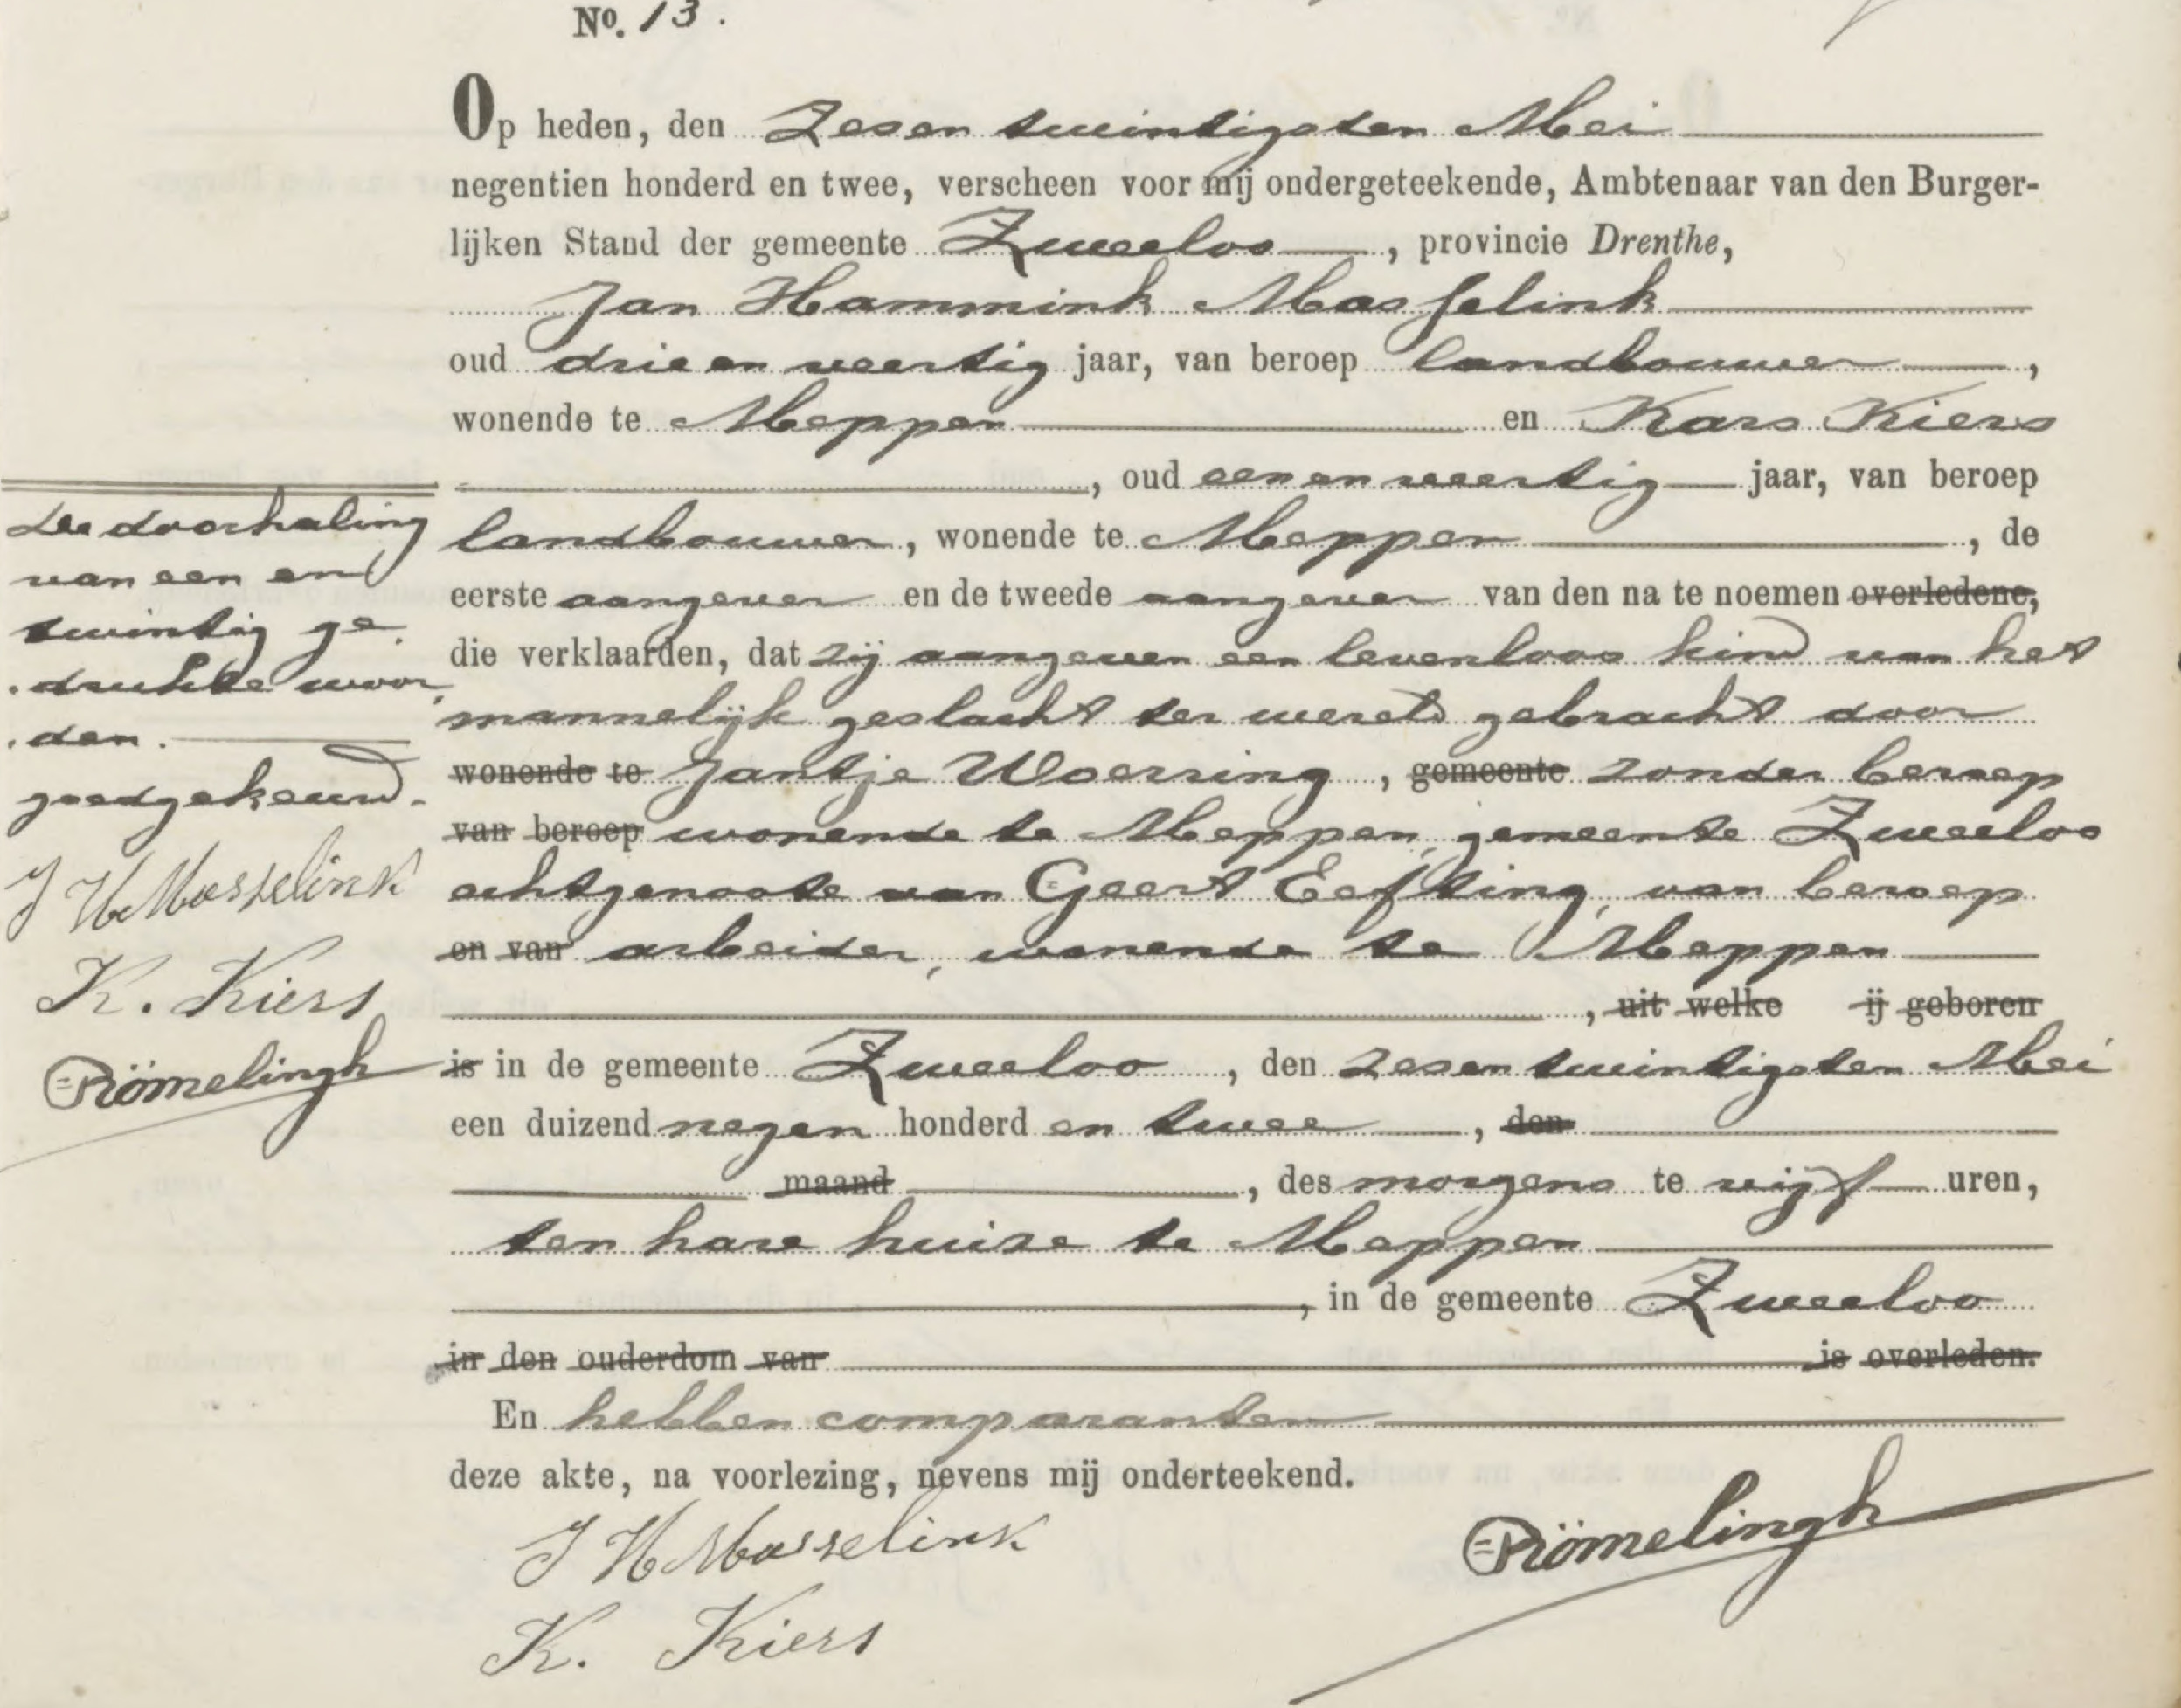 No. 13.
Op heden, den Zesen twintigsten Mei
negentien honderd en twee, verscheen voor mij ondergeteekende, Ambtenaar van den Burger-
lijken Stand der gemeente Zweeloo, provincie Drenthe,
Jan Hammink Masselink
oud drie en veertig jaar, van beroep landbouwer,
wonende te Meppen en Kars Kiers
, oud een en veertig jaar, van beroep
landbouwer, wonende te Meppen, de
eerste aangever en de tweede aangever van den na te noemen overledene,
die verklaarden, dat zij aangeven een levenloos kind van het
mannelijk geslacht ter wereld gebracht door
wonende te Jantje Woerring, gemeente zonder beroep
van beroep wonende te Meppen, gemeente Zweeloo
echtgenoote van Geert Eefting, van beroep
en van arbeider, wonende te Meppen
, uit welke ij geboren
is in de gemeente Zweeloo, den zesen twintigsten Mei
een duizend negen honderd en twee, den
maand, des morgens te vijf uren,
ten hare huize te Meppen
, in de gemeente Zweeloo
in den ouderdom van is overleden.
En hebben comparanten
deze akte, na voorlezing, nevens mij onderteekend.
J H Masselink
K. Kiers
Römelingh
De doorhaling
van een en
twintig ge-
drukte woor-
den.
goedgekeurd.
J H Masselink
K. Kiers
Römelingh